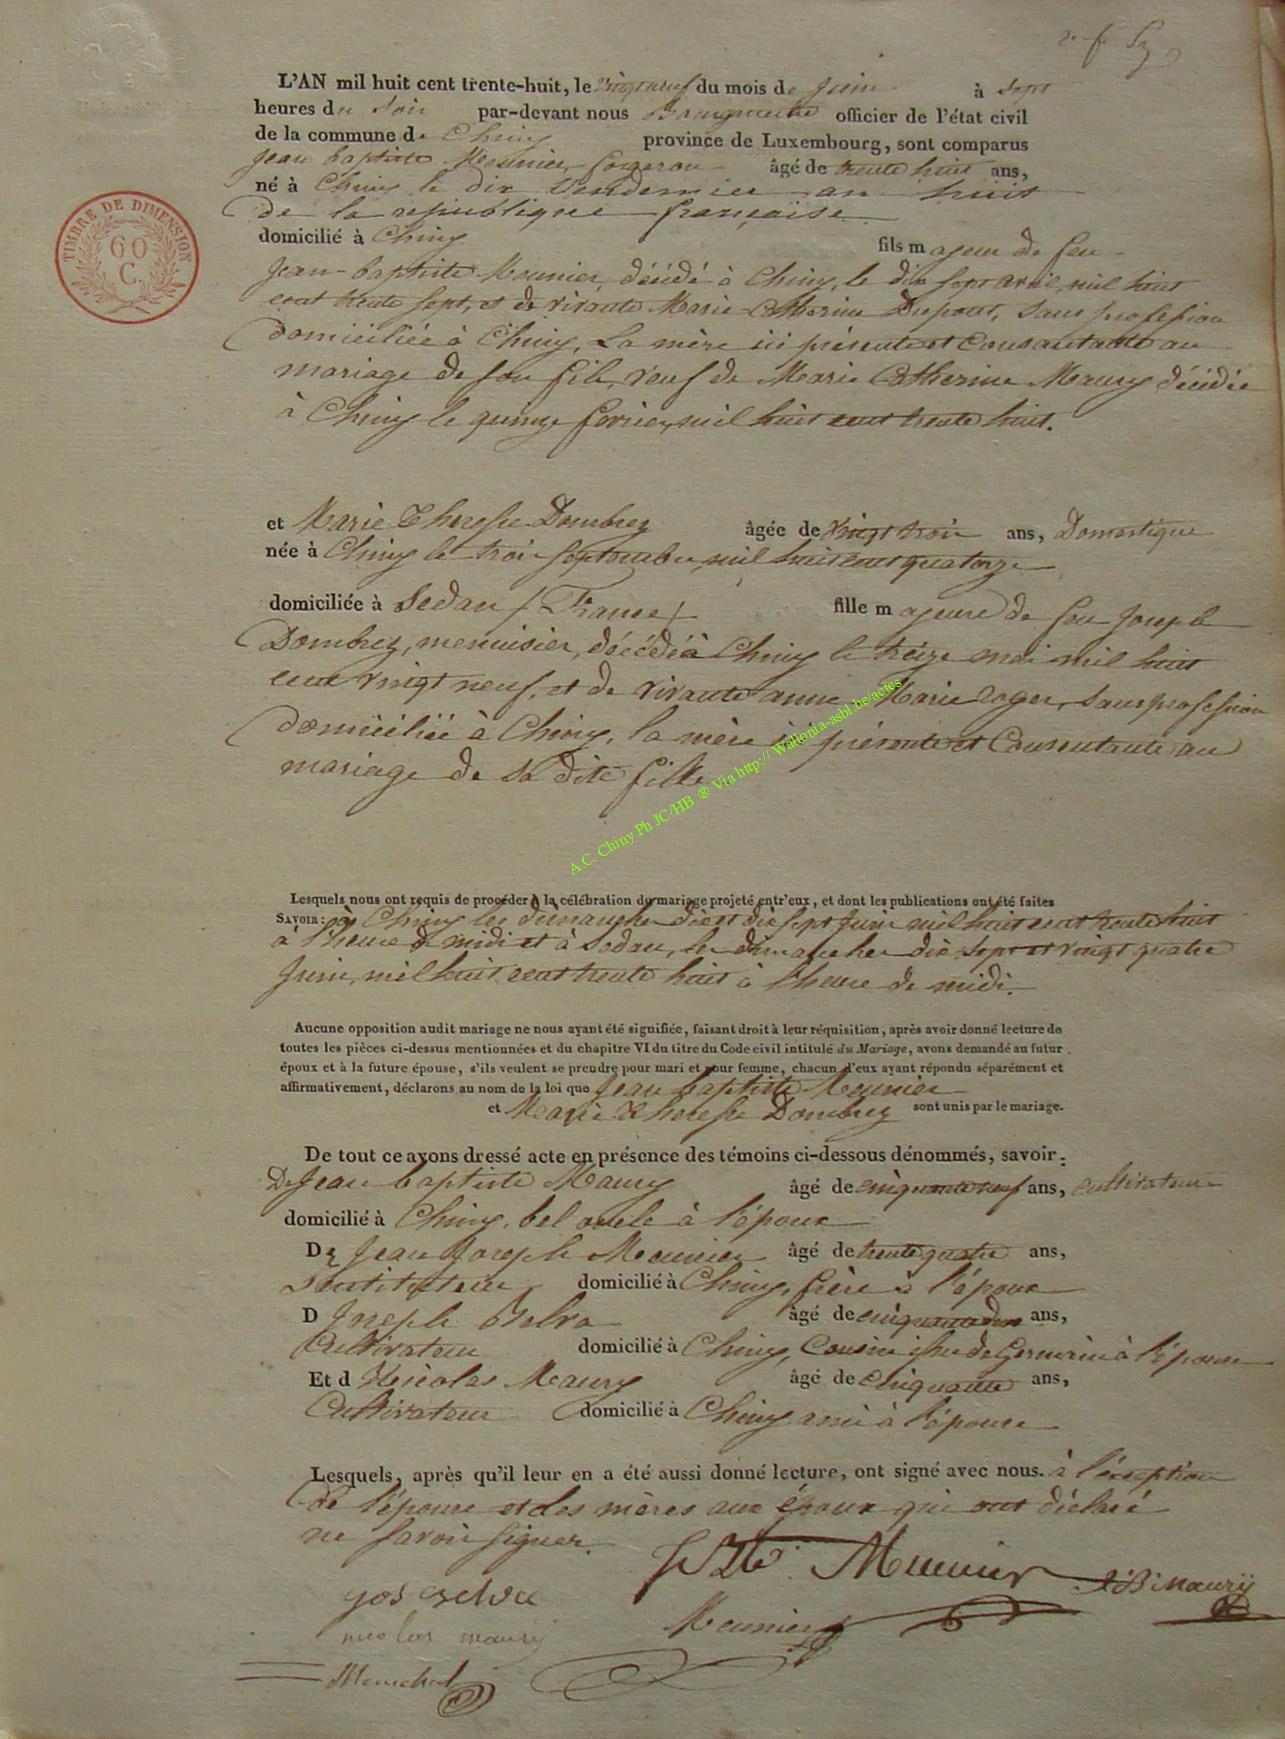 L'AN mil huit cent trente-huit, le vingt neuf du mois de Juin à sept
heures du soir par-devant nous Bourgmestre officier de l'état civil
de la commune de Chiny province de Luxembourg, sont comparus
Jean baptiste Meunier, forgeron âgé de trente huit ans,
né à Chiny le dix vendemier an huit
de la republique française
domicilié à Chiny fils majeur de feu
Jean-baptiste Meunier, décédé à Chiny, le dix sept avril mil huit
cent trente sept, et de vivante Marie-Catherine Dupont, sans profession
domiciliée à Chiny, La mère ici présente et Consentante au
mariage de son fils, veuf de Marie Catherine Maury décédée
à Chiny le quinze fevrier mil huit cent trente huit.
et Marie Therese Dombrez âgée de vingt trois ans, Domestique
née à Chiny le trois septembre mil huit cent quatorze
domiciliée à Sedan (France) fille majeure de feu Joseph
Dombrez, menuisier, décédé à Chiny le treize mai mil huit
cent vingt neuf, et de vivante anne Marie roger, sans profession
domiciliée à Chiny, la mère ici présente et Consentante au
mariage de sa dite fille
A.C. Chiny Ph JC/HB ® Via http:// Wallonia-asbl.be/actes
Lesquels nous ont requis de procéder à la célébration du mariage projeté entr'eux, et dont les publications ont été faites
SAVOIR: à Chiny les dimanches dix et dix sept Juin mil huit cent trente huit
à l'heure de midi et à Sedan, les dimanches dix sept et vingt quatre
Juin, mil huit cent trente huit à l'heure de midi.
Aucune opposition audit mariage ne nous ayant été signifiée, faisant droit à leur réquisition, après avoir donné lecture de
toutes les pièces ci-dessus mentionnées et du chapitre VI du titre du Code civil intitulé du Mariage, avons demandé au futur
époux et à la future épouse, s'ils veulent se prendre pour mari et pour femme, chacun d'eux ayant répondu séparément et
affirmativement, déclarons au nom de la loi que Jean baptiste Meunier
et Marie Therese Dombrez sont unis par le mariage.
De tout ce avons dressé acte en présence des témoins ci-dessous dénommés, savoir:
De Jean baptiste Maury âgé de cinquante neuf ans, cultivateur
domicilié à Chiny, bel oncle à l'époux
De Jean Joseph Meunier âgé de trente quatre ans,
Instituteur domicilié à Chiny, frère à l'époux
D Joseph âgé de cinquante deux ans,
Cultivateur domicilié à Chiny, Cousin issu de Germain à l'épouse
Et d Nicolas Maury âgé de cinquante ans,
Cultivateur domicilié à Chiny ami à l'épouse
Lesquels, après qu'il leur en a été aussi donné lecture, ont signé avec nous. à l'exception
de l'épouse et des mères aux époux qui ont déclaré
ne savoir signer.
Meunier
J:B: Maurÿ
Meunier
nicolas maury
TIMBRE DE DIMENSION
60
C.